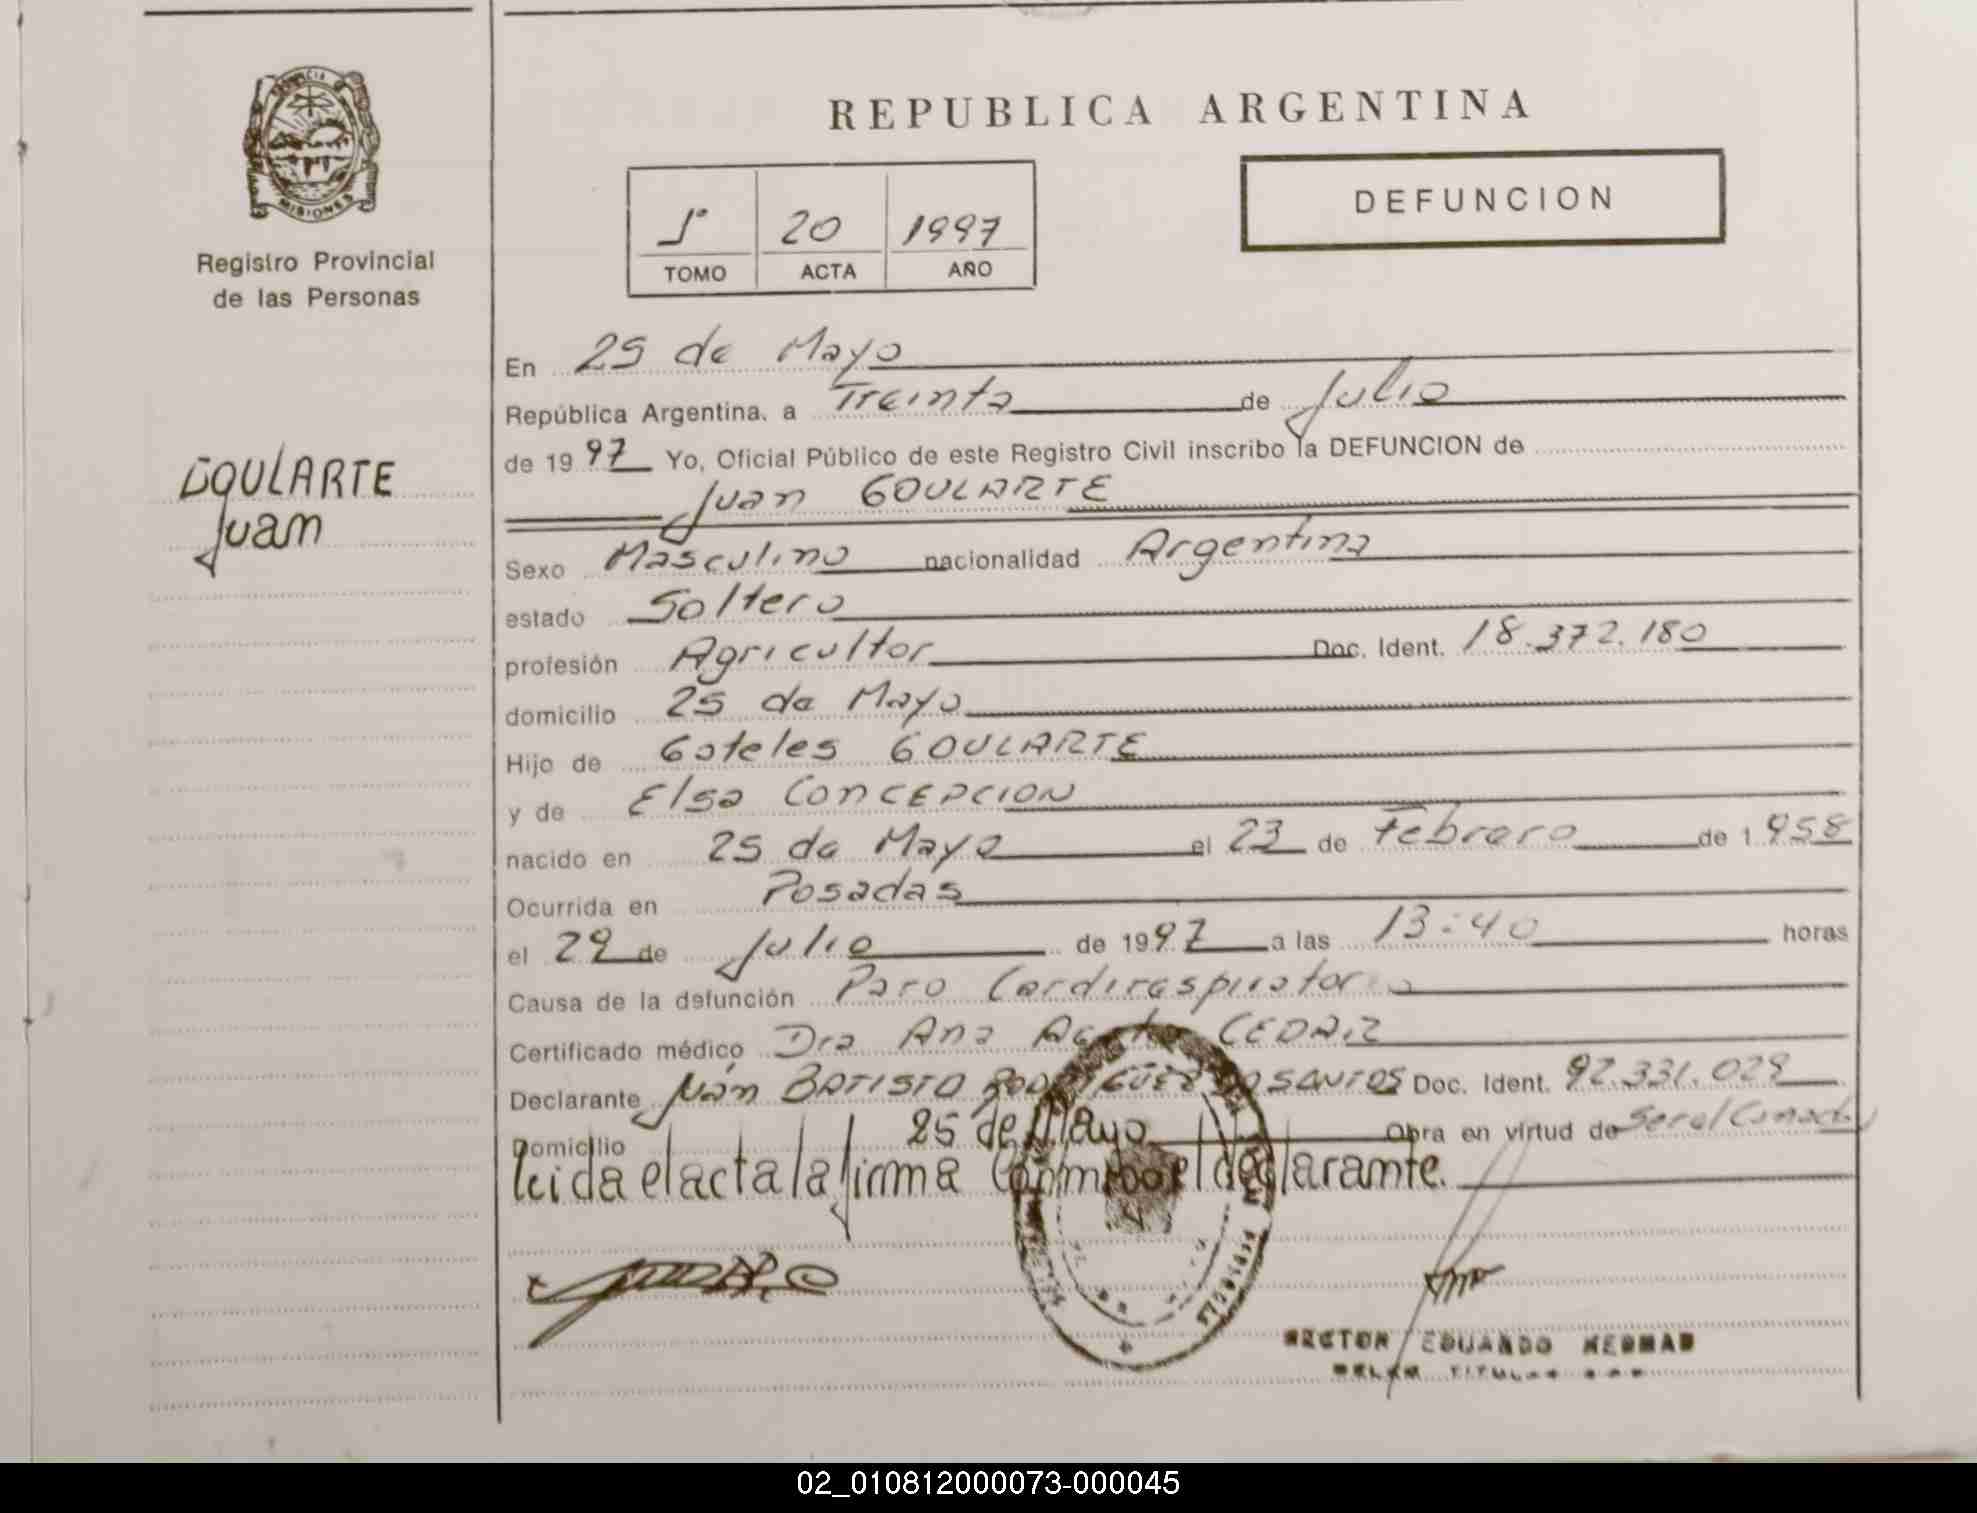 PROVINCIA DE
MISIONES
Registro Provincial
de las Personas
GOULARTE
Juan
REPUBLICA ARGENTINA
1º 20 1997
TOMO ACTA AÑO
DEFUNCION
En 25 de Mayo
República Argentina, a Treinta de Julio
de 1997 Yo, Oficial Público de este Registro Civil inscribo la DEFUNCION de
Juan GOULARTE
Sexo Masculino nacionalidad Argentina
estado Soltero
profesión Agricultor Doc. Ident. 18.372.180
domicilio 25 de Mayo
Hijo de Goteles GOULARTE
y de Elsa CONCEPCION
nacido en 25 de Mayo el 23 de Febrero de 1958
Ocurrida en Posadas
el 29 de Julio de 1997 a las 13:40 horas
Causa de la defunción Paro Cardirespiratorio
Certificado médico Dra Ana
Declarante Juan BATISTO RODRIGUEZ DOSANTOS Doc. Ident. 92.331.029
Domicilio 25 de Mayo Obra en virtud de
leida el acta la firma Conmigo el declarante.
HECTOR EDUARDO
02_010812000073-000045